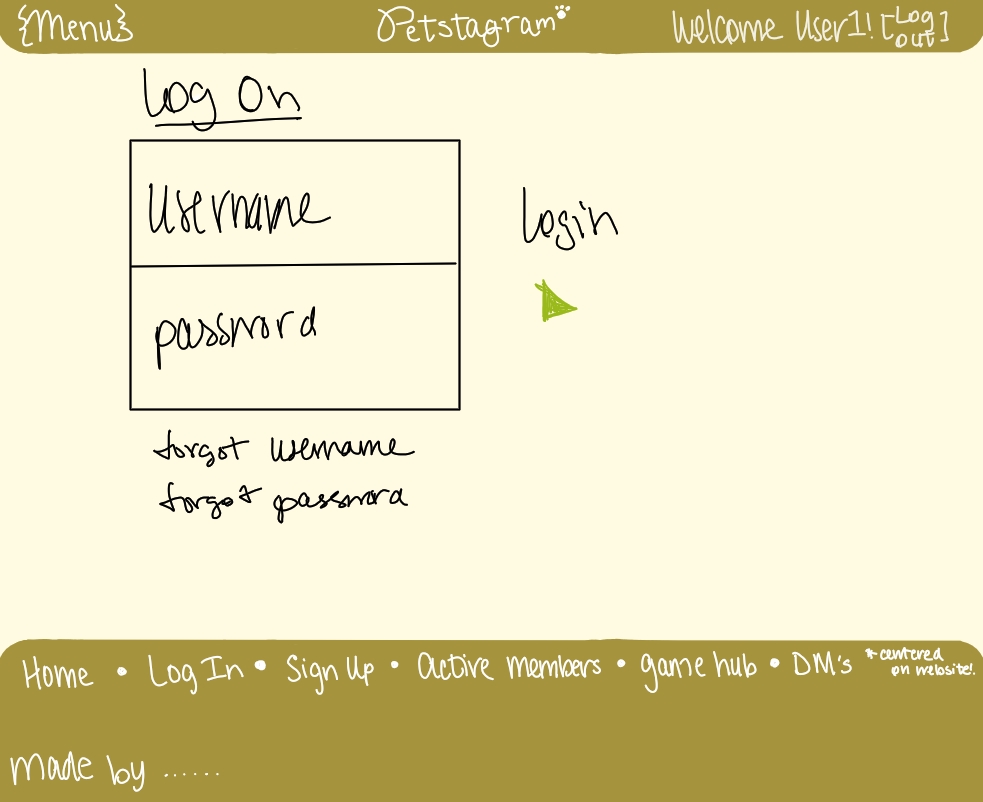 {Menu}
Petstagram
Welcome User1! [Log out]
Log On
Username
Login
password
forgot username
forgot password
Home • Log In • Sign Up • Active members • game hub • DM's
*centered on website!
Made by ......